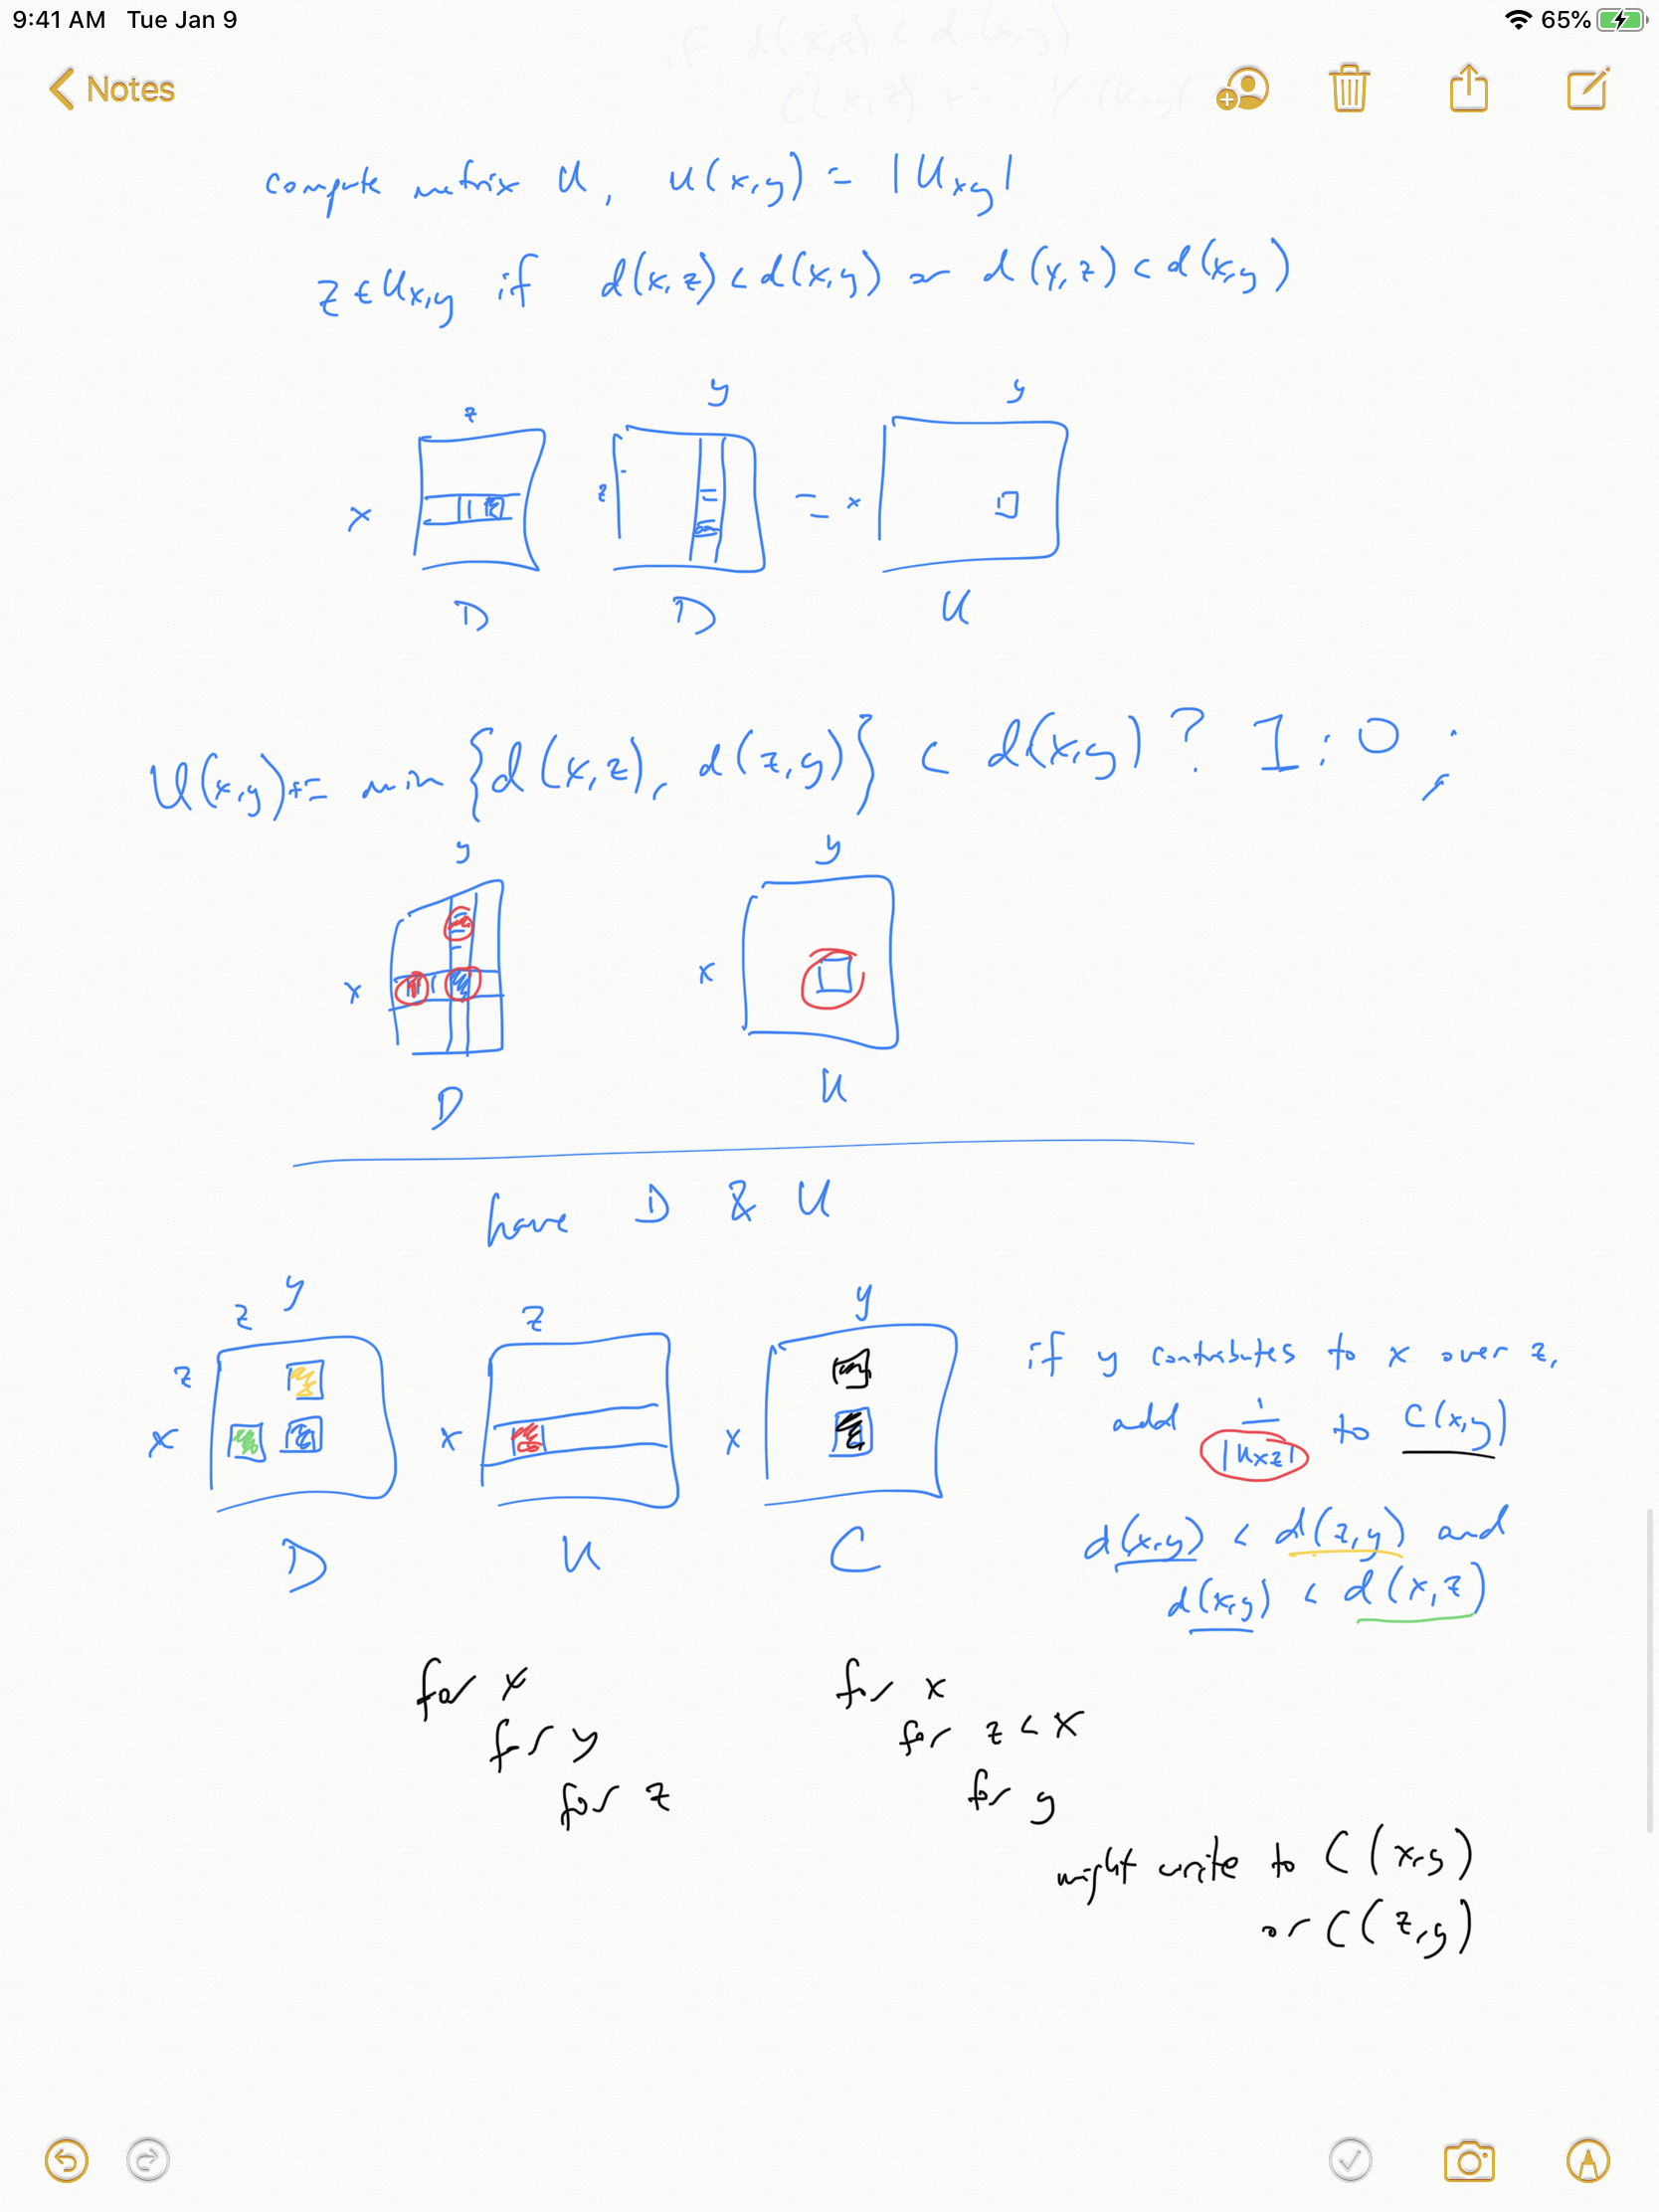 9:41 AM Tue Jan 9
65%
Notes
compute matrix U, u(x,y) = |Uxy|
z ∈ Ux,y if d(x,z) < d(x,y) or d(y,z) < d(x,y)
z y y
x z = x
D D U
U(x,y) += min {d(x,z), d(z,y)} < d(x,y) ? 1 : 0 ;
y y
x x
D U
have D & U
z y z y
z
x x x
D U C
if y contributes to x over z,
add 1/|Uxz| to C(x,y)
d(x,y) < d(z,y) and
d(x,y) < d(x,z)
for x
for y
for z
for x
for z < x
for y
might write to C(x,y)
or C(z,y)